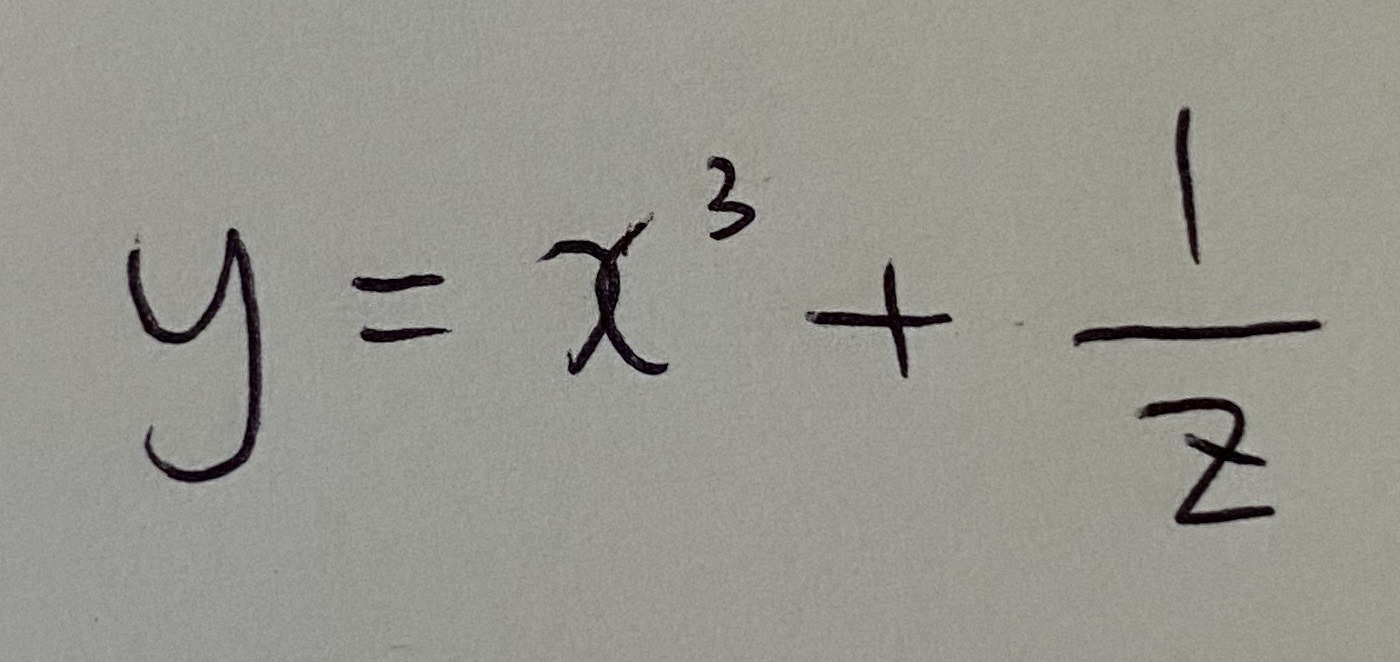 y = x³ + 1/z